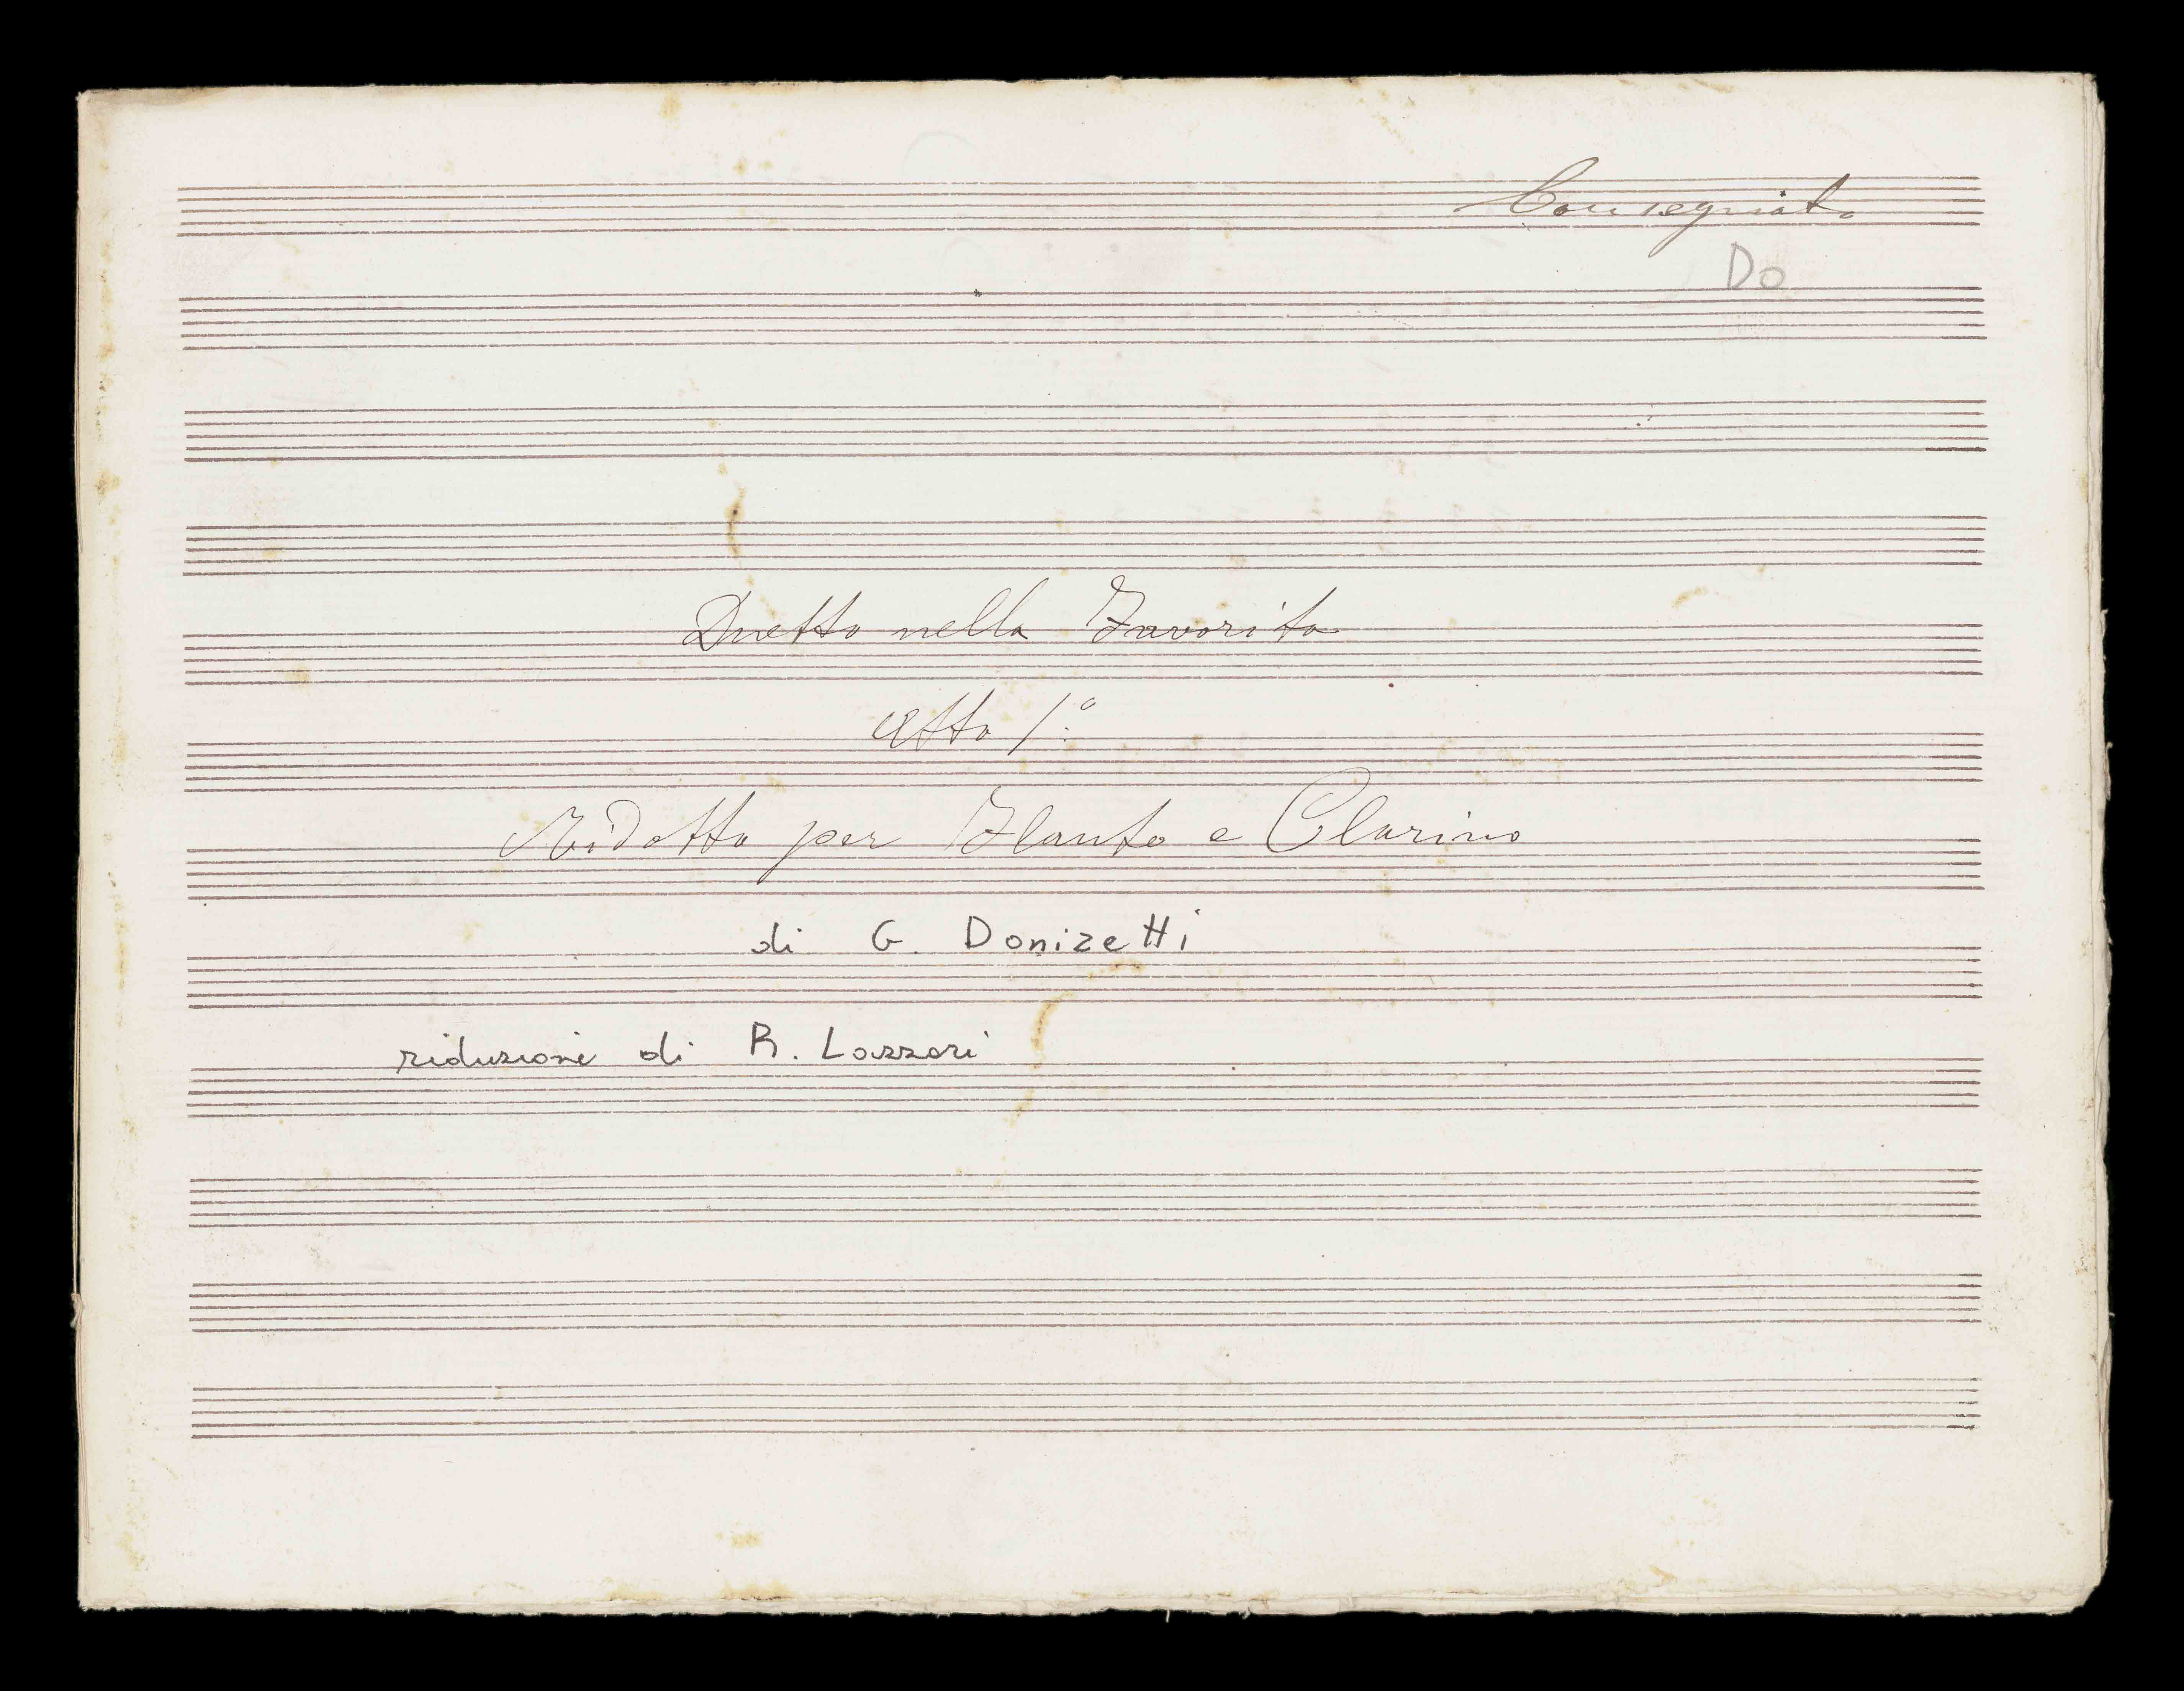 Consegniato
Do
Duetto nella Favorita
Atto 1º
Ridotto per Flauto e Clarino
di G. Donizetti
riduzione di R. Lazzari